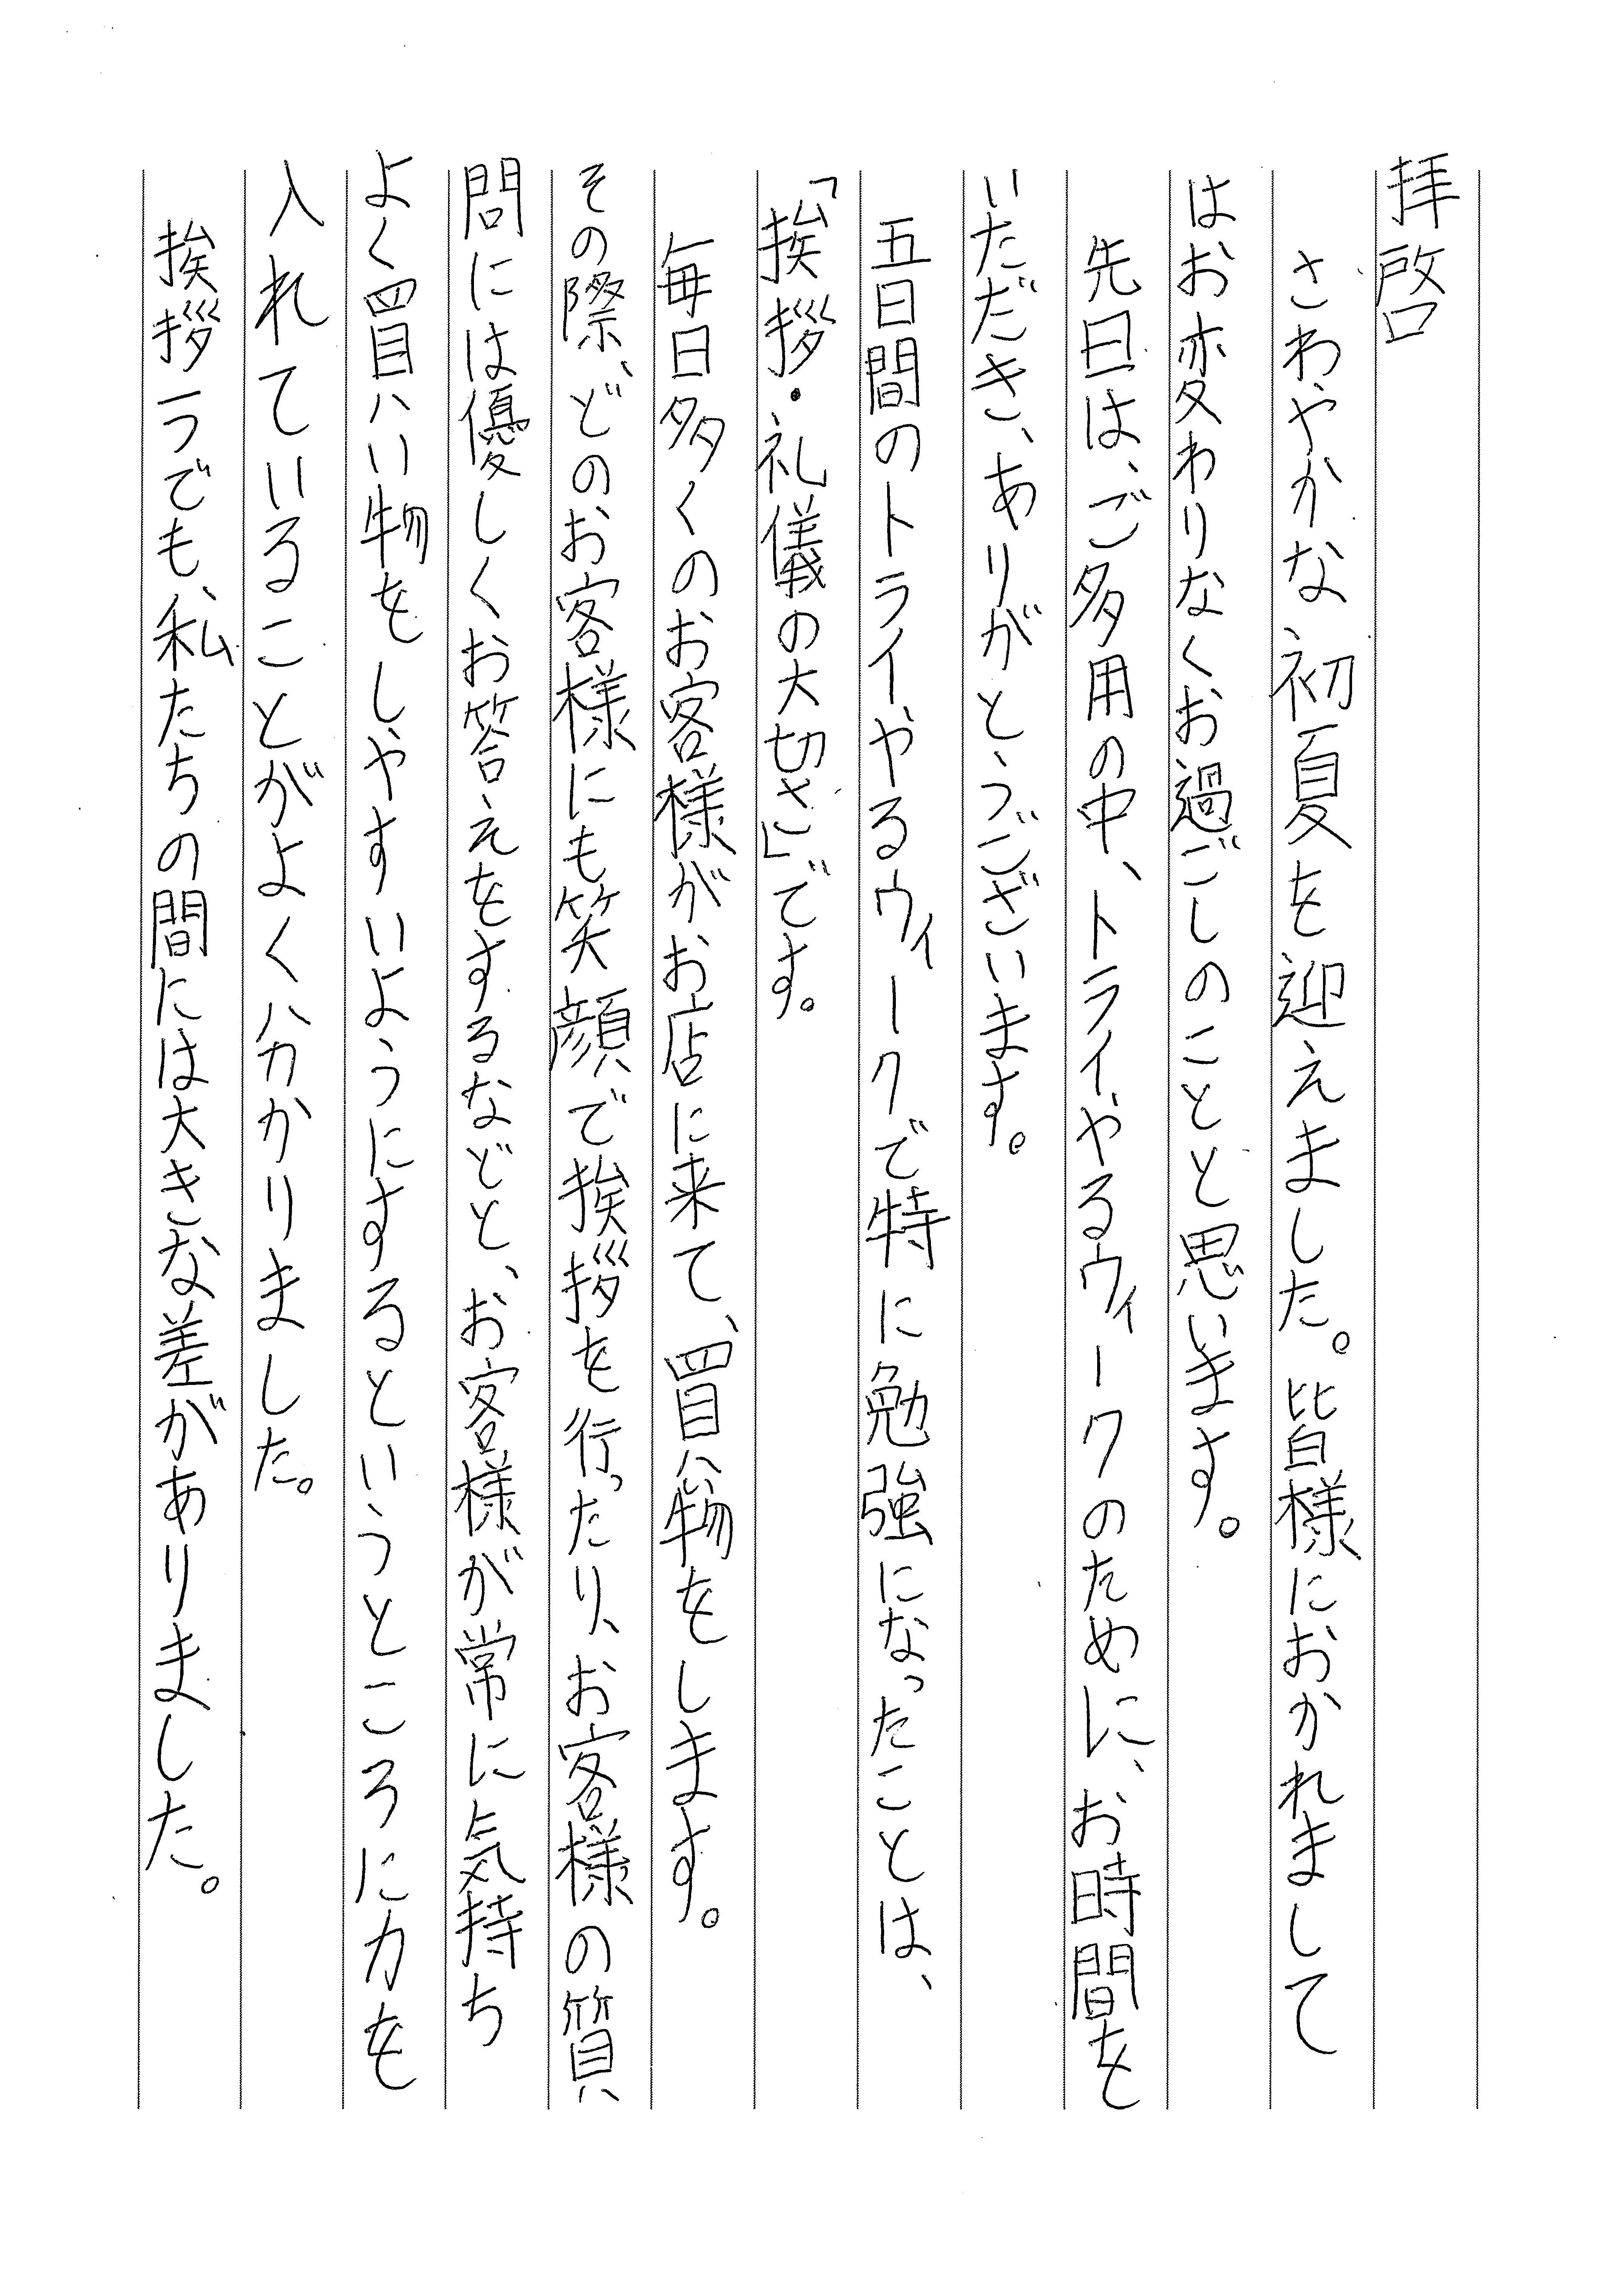 拝啓
さわやかな初夏を迎えました。皆様におかれまして
はお変わりなくお過ごしのことと思います。
先日は、ご多用の中、トライやるウィークのために、お時間を
いただき、ありがとうございます。
五日間のトライやるウィークで特に勉強になったことは、
「挨拶・礼儀の大切さ」です。
毎日多くのお客様がお店に来て、買い物をします。
その際、どのお客様にも笑顔で挨拶を行ったり、お客様の質
問には優しくお答えをするなどと、お客様が常に気持ち
よく買い物をしやすいようにするというところに力を
入れていることがよく分かりました。
挨拶一つでも、私たちの間には大きな差がありました。